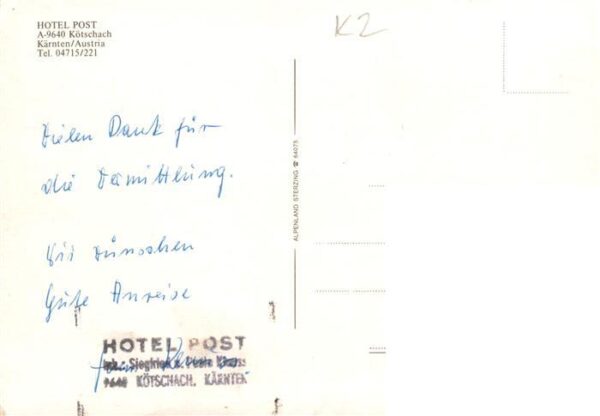 HOTEL POST
A-9640 Kötschach
Kärnten/Austria
Tel. 04715/221
K2
Vielen Dank für
die Vermittlung.
Wir wünschen
Gute Anreise
ALPENLAND STERZING ☎ 64075
HOTEL POST
Inh.: Siegfried u.
9640 KÖTSCHACH, KÄRNTEN